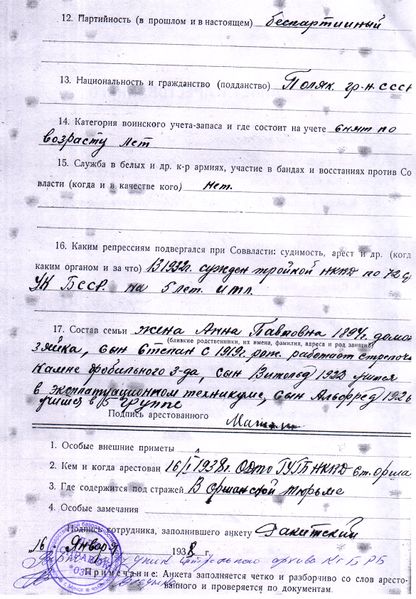 12. Партийность (в прошлом и в настоящем) беспартийный
13. Национальность и гражданство (подданство) Поляк гр-н ссс
14. Категория воинского учета-запаса и где состоит на учете снят по
возрасту лет
15. Служба в белых и др. к-р армиях, участие в бандах и восстаниях против Со
власти (когда и в качестве кого) нет.
16. Каким репрессиям подвергался при Соввласти: судимость, арест и др. (когд
каким органом и за что) В 1932г. сужден тройкой НКВД по 72
УК БССР. на 5 лет. итл.
17. Состав семьи жена Анна Павловна 1894. домо
(близкие родственники, их имена, фамилия, адреса и род занятий)
зяйка, сын Степан с 1919г. рож. работает
Камне дробильного з-да, сын Витольд 1923 учится
в эксплуатационном техникуме, сын Альфред 1926
учится в 5 группе
Подпись арестованного
1. Особые внешние приметы
2. Кем и когда арестован 16/I 1938г. ОДТО ГУГБ НКВД ст. Орша
3. Где содержится под стражей В Оршанской тюрьме
4. Особые замечания
Подпись сотрудника, заполнившего анкету
16 Января 1938 г.
архива КГБ РБ
Примечание: Анкета заполняется четко и разборчиво со слов аресто-
ванного и проверяется по документам.